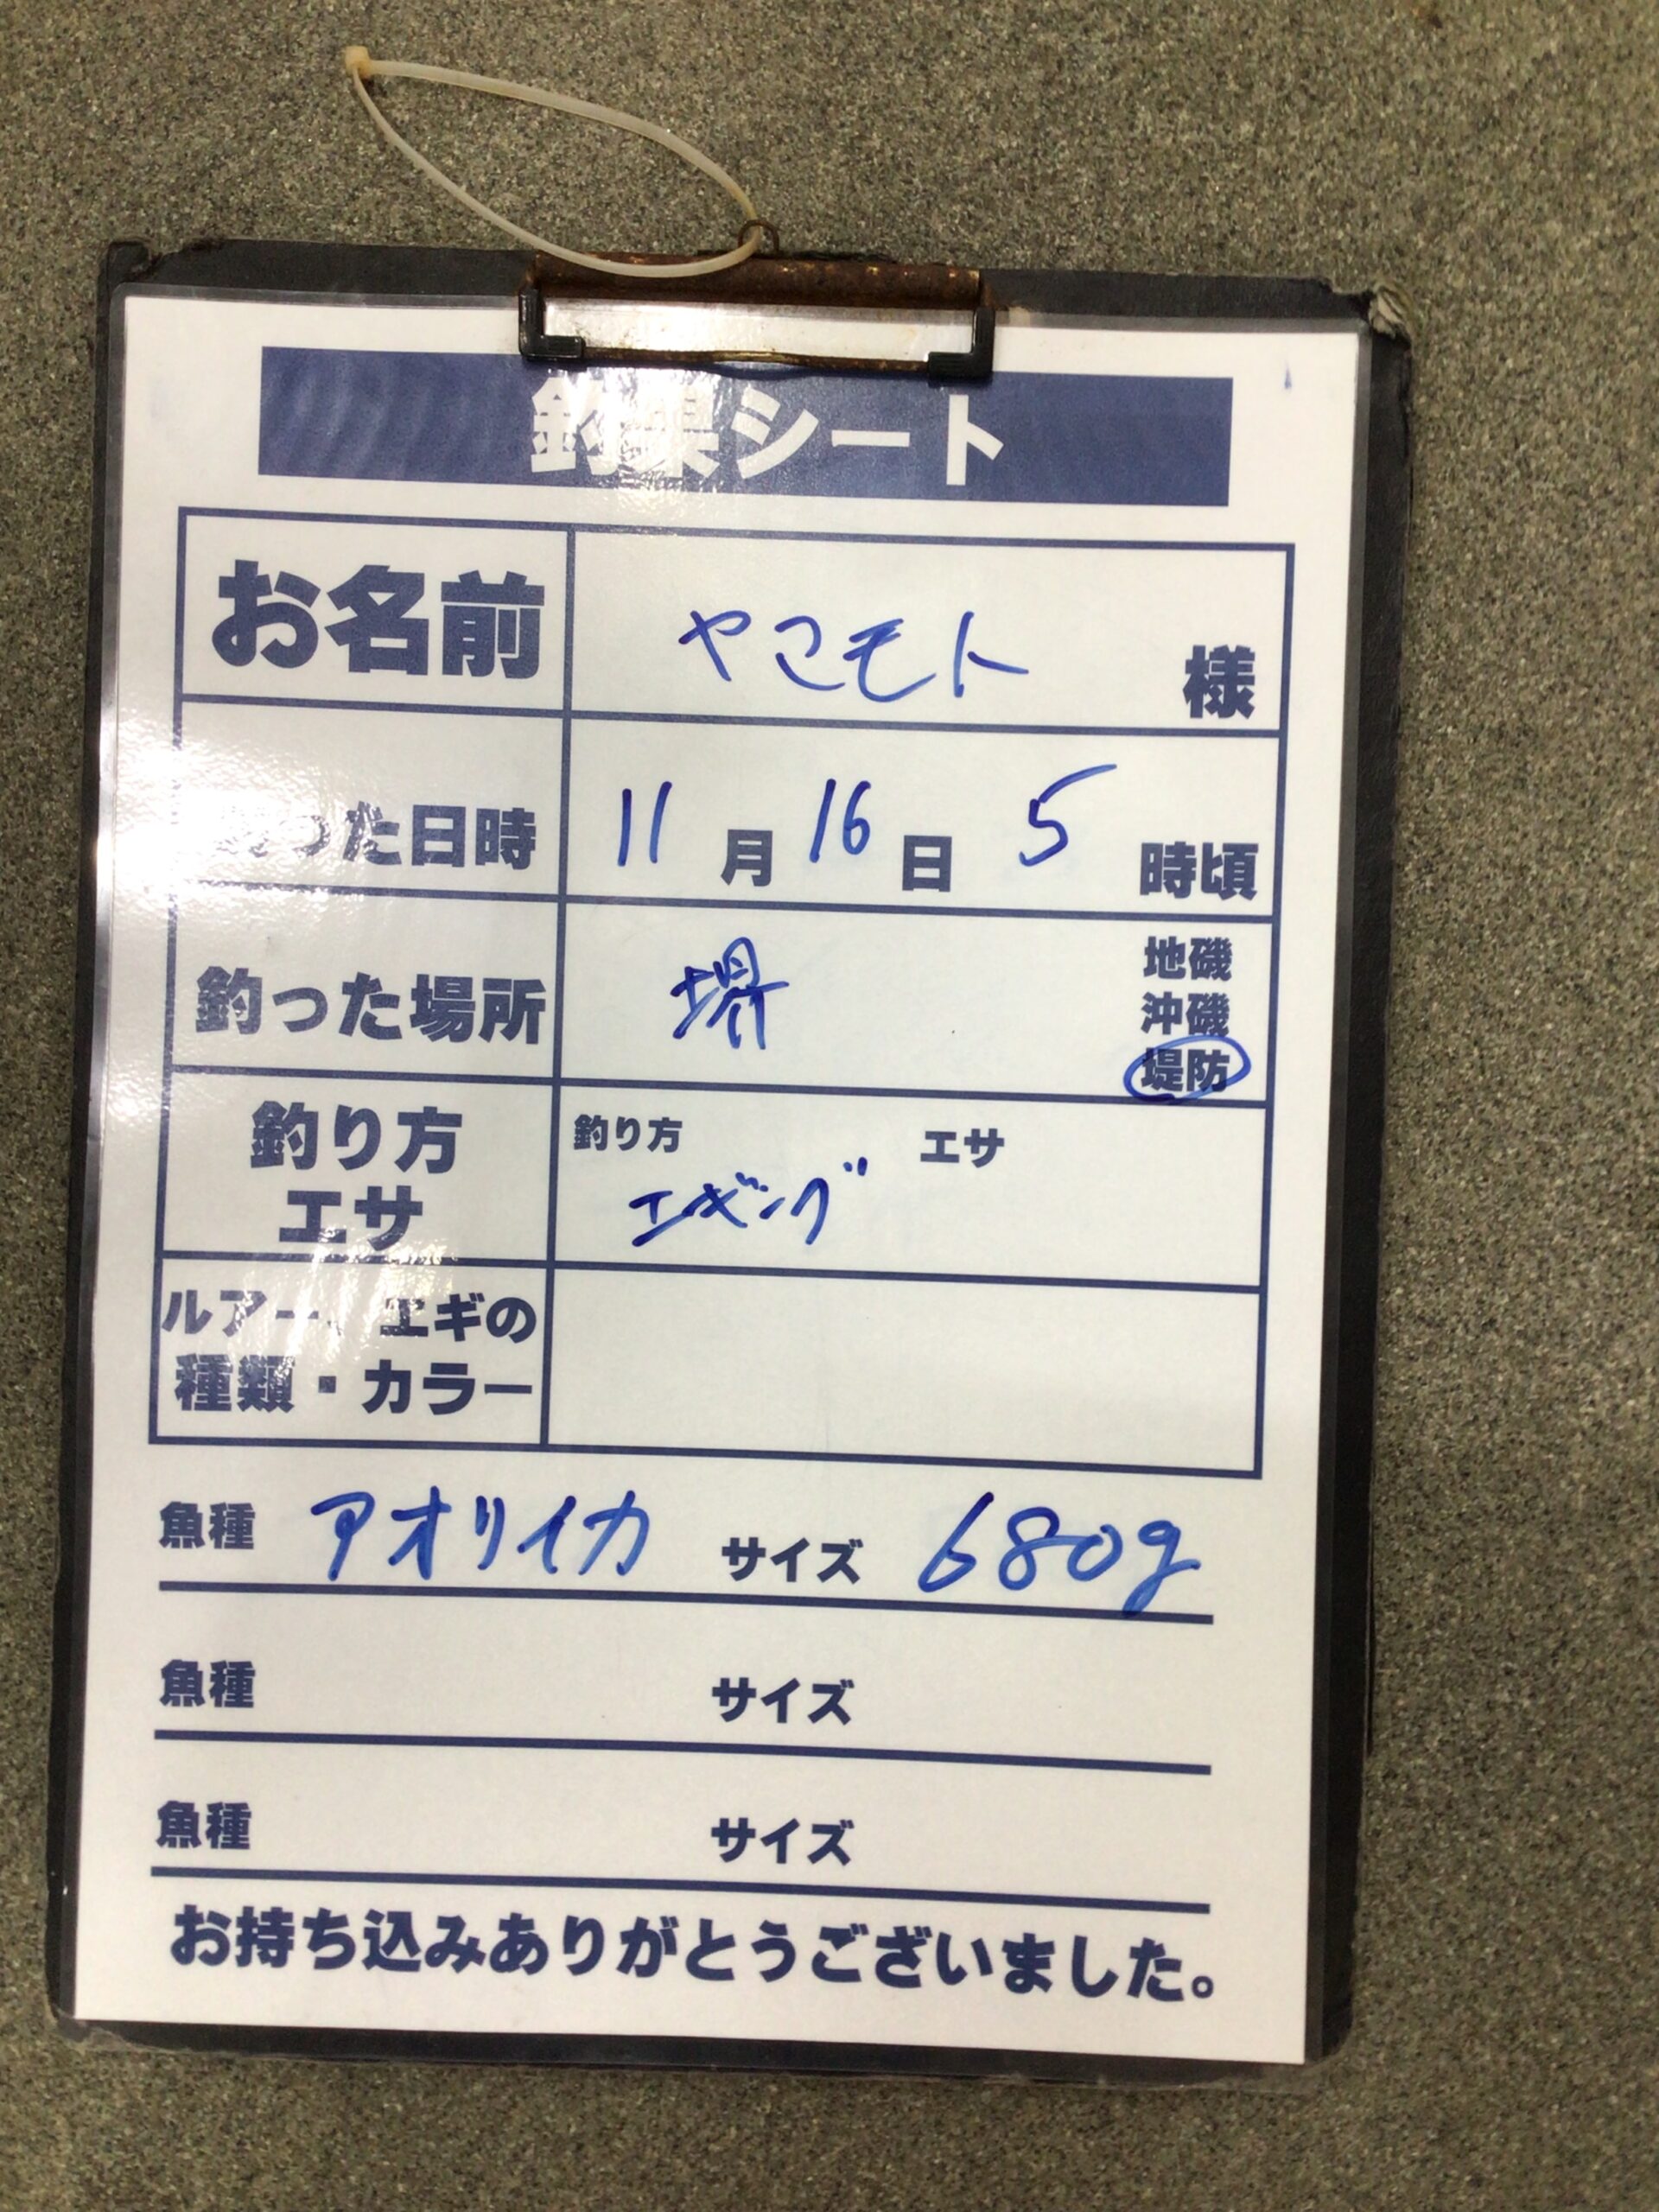 釣果シート
お名前 ヤマモト 様
釣った日時 11月16日 5時頃
地磯
沖磯
釣った場所 堺 堤防
釣り方 エサ
釣り方
エサ エギング
ルアー、エギの
種類・カラー
魚種 アオリイカ サイズ 680g
魚種 サイズ
魚種 サイズ
お持ち込みありがとうございました。